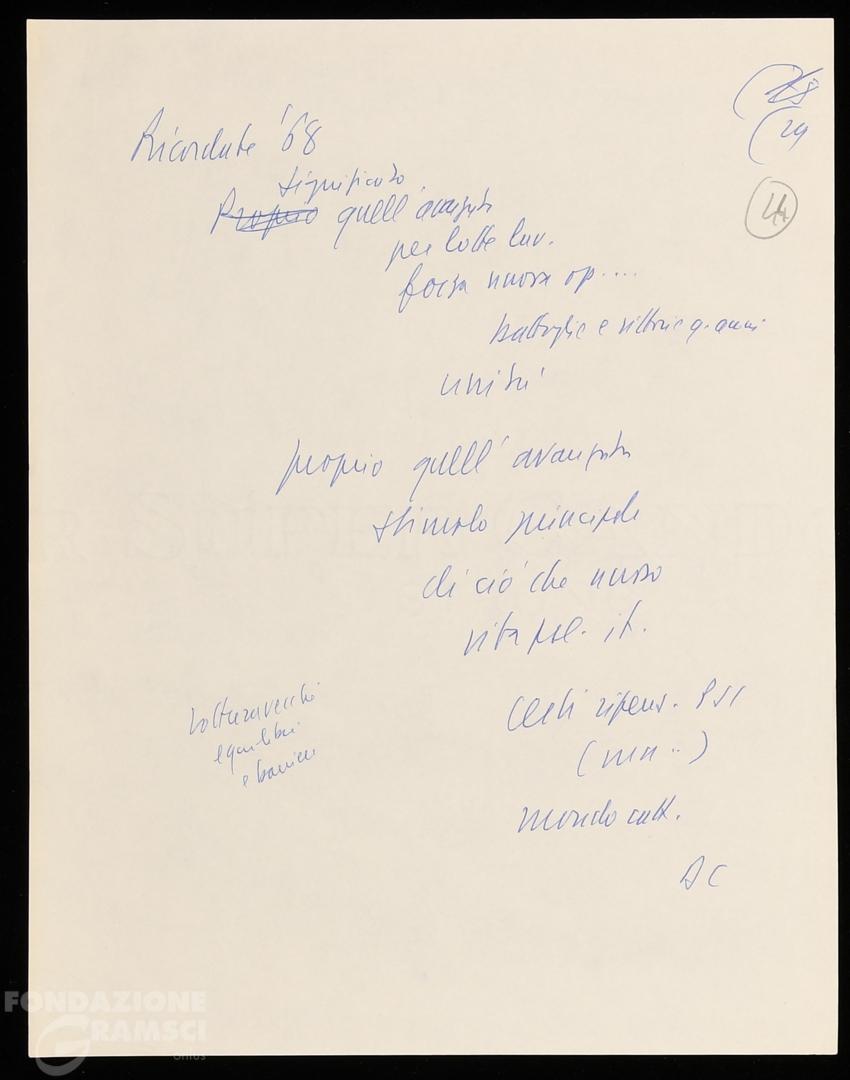 (28
(29
Ricordate '68
44
significato
Proprio quell'avanzata
per lotte lav.
forza nuova op....
battaglie e vittorie q. anni
unità
proprio quell'avanzata
stimolo principale
di ciò che nuovo
vita pol. it.
rottura vecchi
equilibri
e barriere
Certi ripens. PSI
(ma..)
mondo catt.
DC
FONDAZIONE
GRAMSCI
onlus